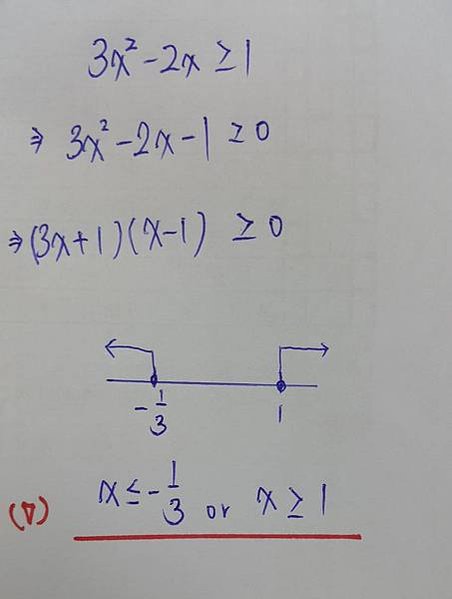 3x² - 2x ≥ 1
⇒ 3x² - 2x - 1 ≥ 0
⇒ (3x+1)(x-1) ≥ 0
-1/3 1
(∇) x ≤ -1/3 or x ≥ 1